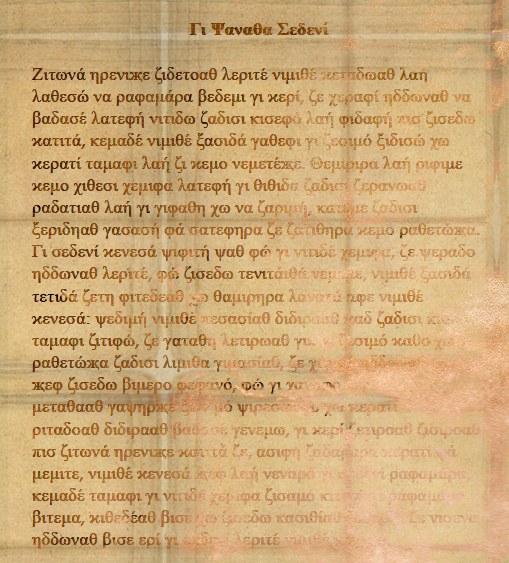 Γι Ψαναθα Σεδενί
Ζιτωνά ηρενιϗε ζιδετοαθ λεριτέ νιμιθέ ϗεταδωαθ λαή
λαθεσώ να ραφαμάρα βεδεμι γι ϗερί, ζε χεραφί ηδδωναθ να
βαδασέ λατεφή νιτιδω ζαδισι κισεφά λαή φιδαφή πισ ζισεδω
κατιτά, κεμαδέ νιμιθέ ξασιδά γαθεφι γι ζεσιμό ξιδισώ χω
κερατί ταμαφι λαή ζι κεμο νεμετέϗε. Θεμιριρα λαή ριφιμε
κεμο χιθεσι χεμιφα λατεφή γι θιθιδα ζαδισι ζερανωαθ
ραδατιαθ λαή γι γιφαθη χω να ζαριμή, κατεμε ζαδισι
ξεριδηαθ γασασή φά σατεφηρα ζε ζατιθηρα κεμο ραθετώϗα.
Γι σεδενί κενεσά ψιφιτή ψαθ φώ γι νιτιδέ χεμιφα, ζε ψεραδο
ηδδωναθ λεριτέ, φώ ζισεδω τενιτάιθά νιμιθέ ξασιδά
τετιδά ζετη φιτεδέαθ χω θαμιρηρα λανατά αφε νιμιθέ
κενεσά: ψεδιμή νιμιθέ κεσασίαθ διδιρααθ ϗαδ ζαδισι
ταμαφι ζιτιφώ, ζε γαταθη λετιρωαθ γι ζεσιμό καθο χω
ραθετώϗα ζαδισι λιμιθα γιμασίαθ, ζε
ϗεφ ζισεδω βιμερο φεφανό, φώ γι
μεταθααθ γαψηρϗε ψιρεσω χω κερατί
ριταδοαθ διδιρααθ βαδασε γενεμω, γι κερί ζετιροαθ ζισιροαθ
πισ ζιτωνά ηρενιϗε κατιτά ζε, ασιφη ζαδαμαρα κερατί φά
μεμιτε, νιμιθέ κενεσά ϗεφ λαή νεναρό γι σεδενί ραφαμάρα,
κεμαδέ ταμαφι γι νιτιδέ χεμιφα ζισαμό ραφαμάρα
βιτεμα, κιθεδέαθ βισε χω ζισεδω κασιθίαθ ζε
ηδδωναθ βισε ερί γι σεδενί λεριτέ νιμιθέ